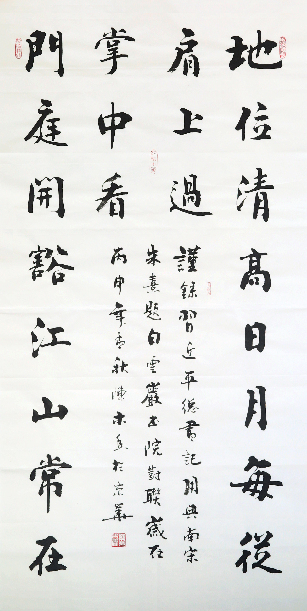 地位清高日月每從
肩上過
門庭開豁江山常在
掌中看
謹錄習近平總書記用典南宋
朱熹題白雲巖書院對聯歲在
丙申年秋陳木於京華